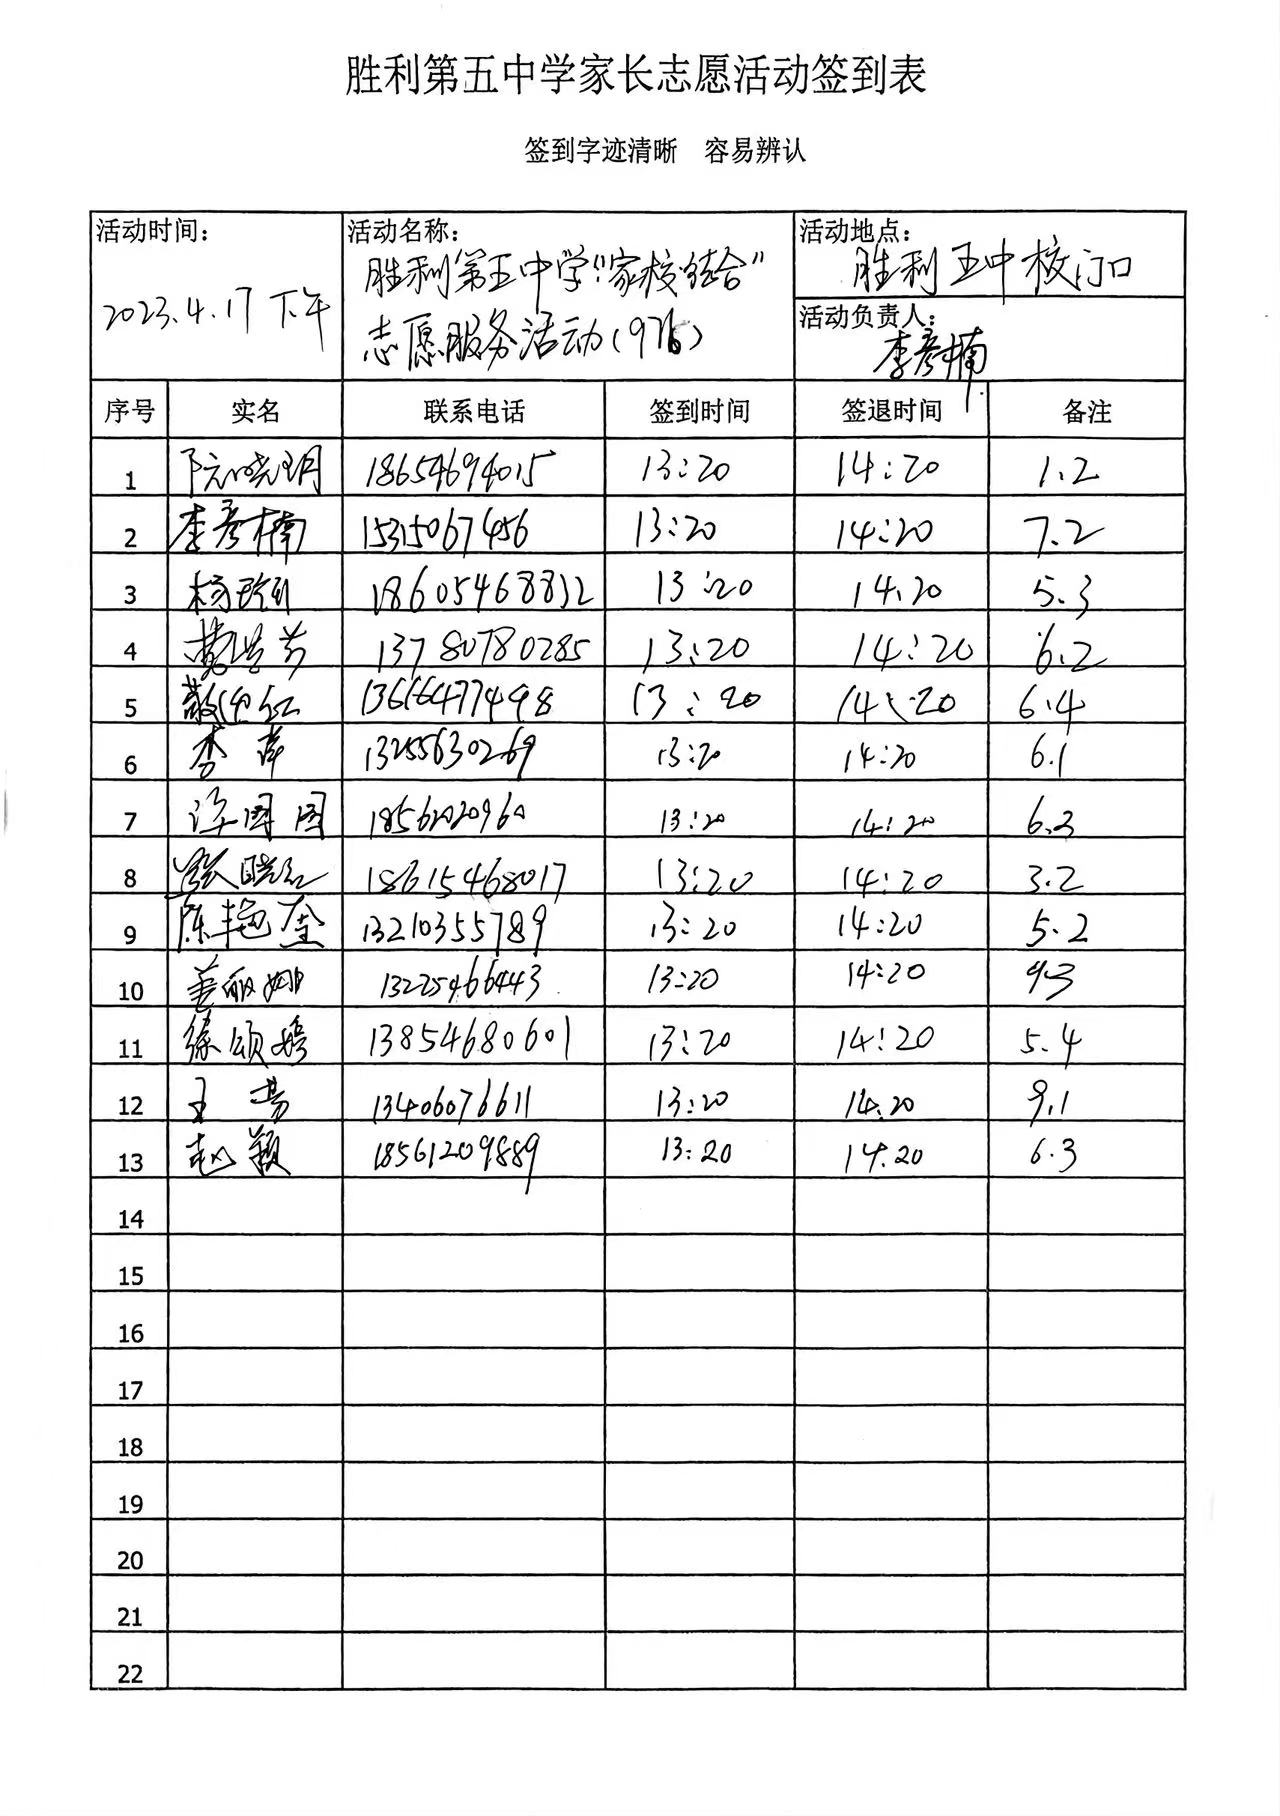 胜利第五中学家长志愿活动签到表
签到字迹清晰 容易辨认
活动时间:
2023.4.17 下午
活动名称:
胜利第五中学"家校结合"
志愿服务活动(976)
活动地点:
胜利五中校门口
活动负责人:
李彦楠
序号 实名 联系电话 签到时间 签退时间 备注
1 阮晓玥 18654694015 13:20 14:20 1.2
2 李彦楠 15315067456 13:20 14:20 7.2
3 18605468832 13:20 14:20 5.3
4 13780780285 13:20 14:20 6.2
5 13666477498 13:20 14:20 6.4
6 李萍 13255630269 13:20 14:20 6.1
7 18561202960 13:20 14:20 6.3
8 张晓红 18615468017 13:20 14:20 3.2
9 陈艳奎 13210355789 13:20 14:20 5.2
10 姜丽娜 13225466443 13:20 14:20 9.3
11 徐颂婷 13854680601 13:20 14:20 5.4
12 13406076611 13:20 14:20 9.1
13 赵颖 18561209889 13:20 14:20 6.3
14
15
16
17
18
19
20
21
22